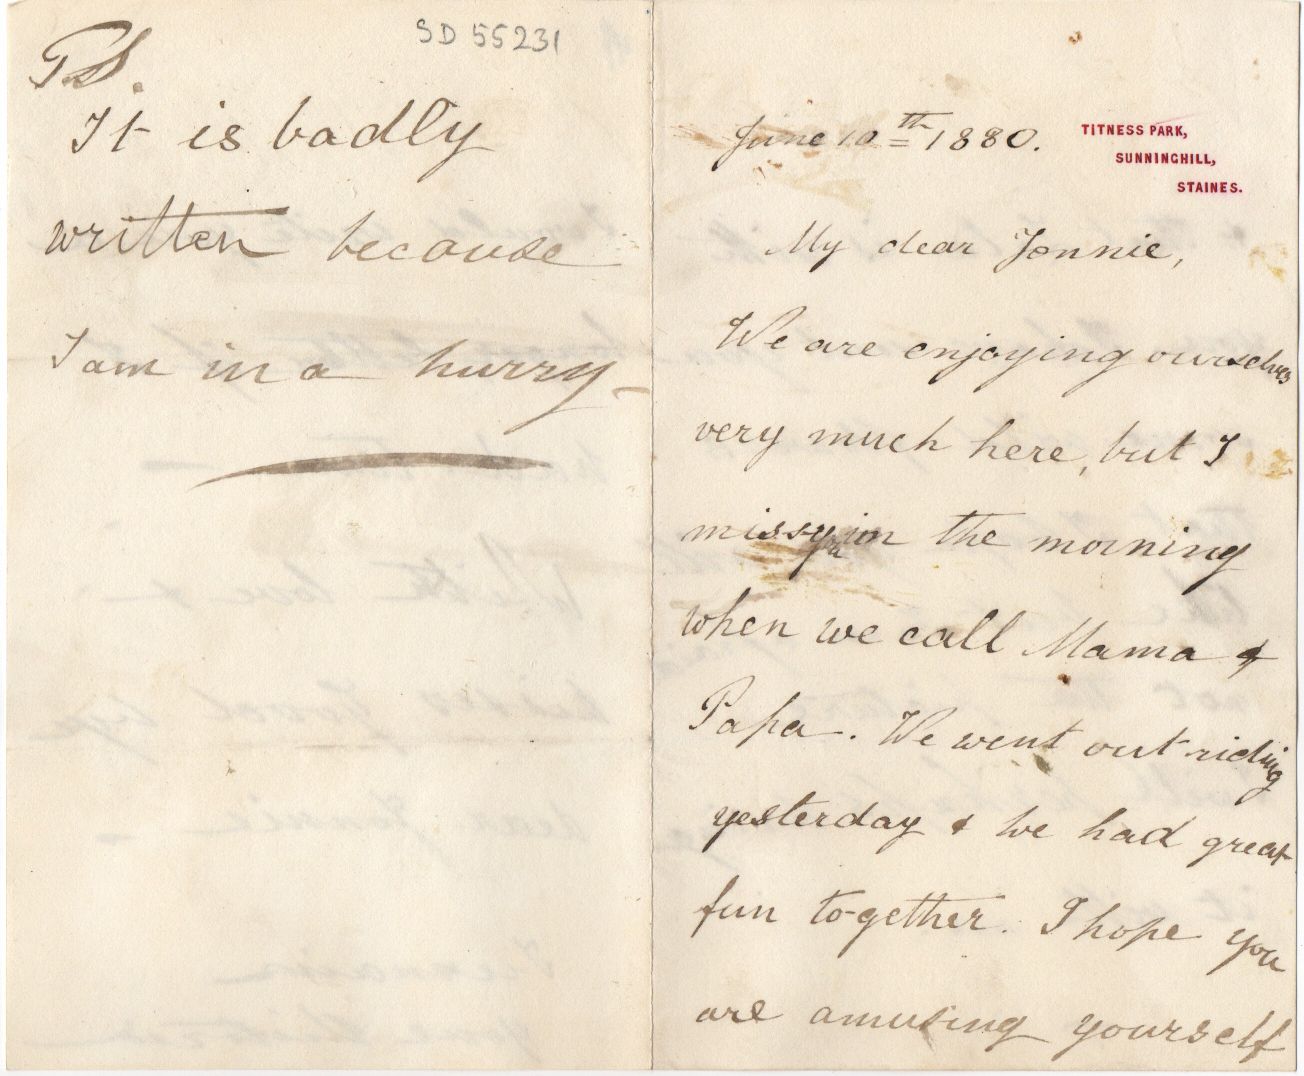 SD 55231
PS.
It is badly
written because
I am in a hurry
June 10th 1880.
TITNESS PARK,
SUNNINGHILL,
STAINES.
My dear Jonnie,
We are enjoying ourselves
very much here, but I
miss you in the morning
when we call Mama &
Papa. We went out riding
yesterday & we had great
fun to-gether. I hope you
are amusing yourself